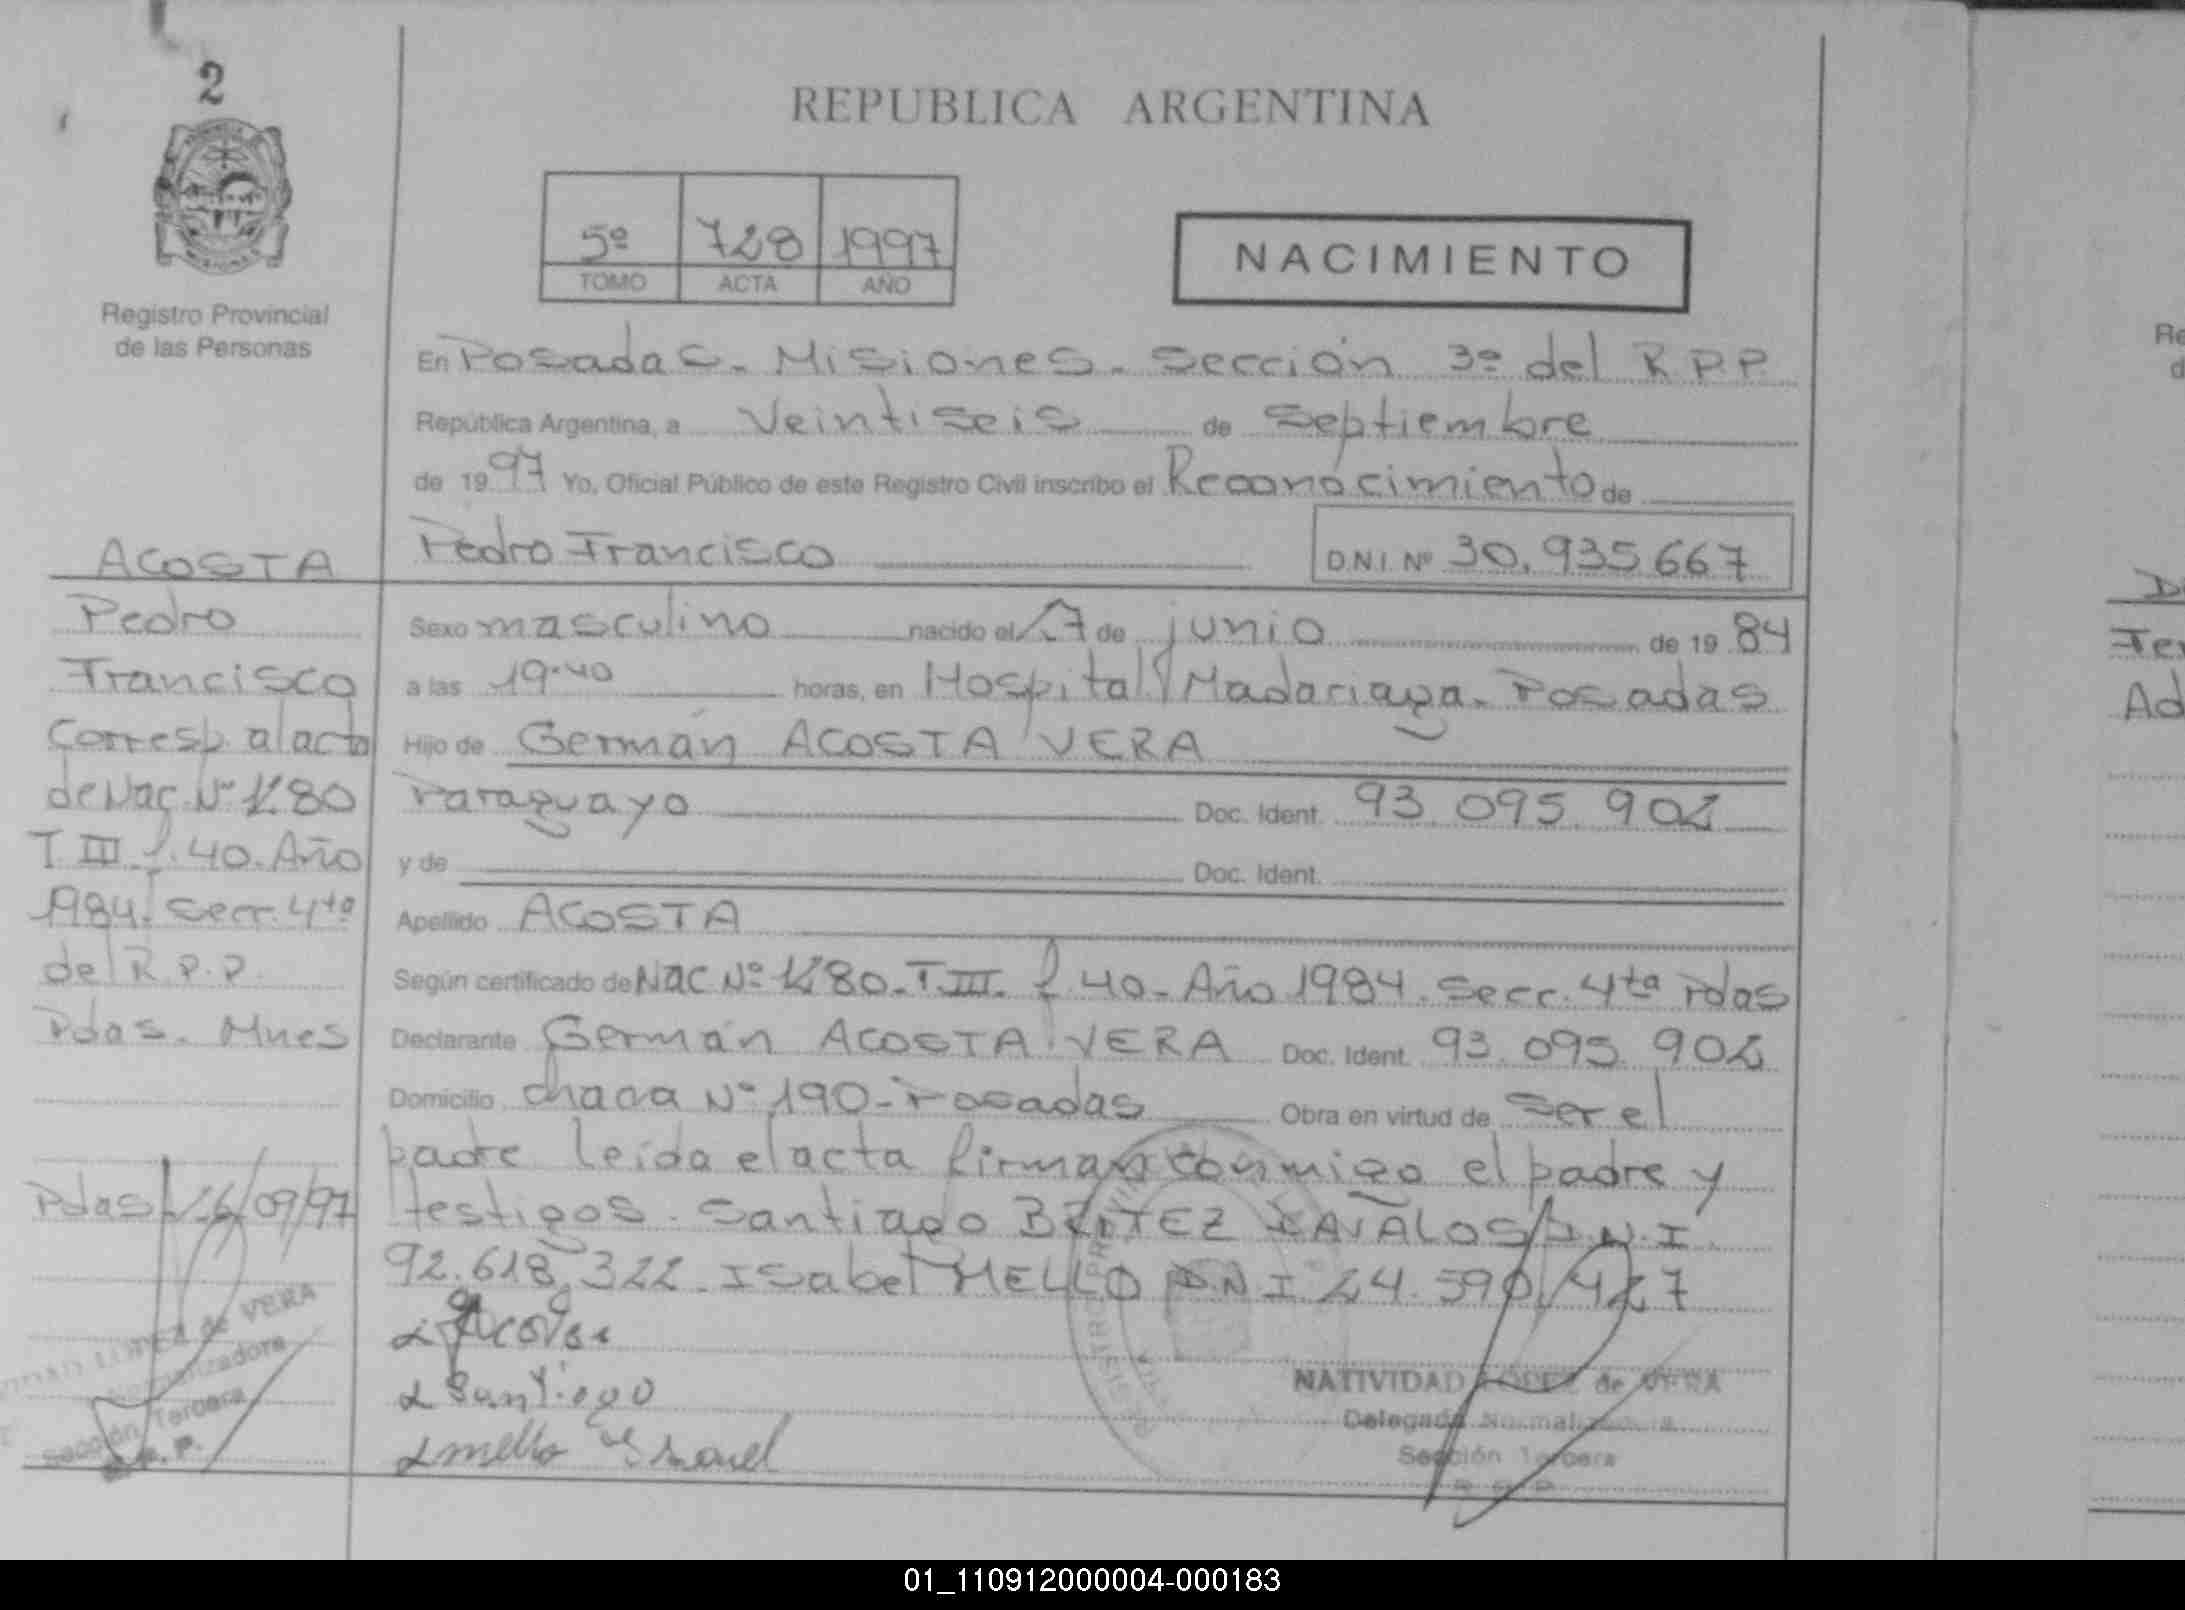 2
REPUBLICA ARGENTINA
5º 728 1997
TOMO ACTA AÑO
NACIMIENTO
Registro Provincial
de las Personas
En Posadas - Misiones - Sección 3º del R.P.P.
República Argentina, a Veintiseis de Septiembre
de 1997 Yo, Oficial Público de este Registro Civil inscribo el Reconocimiento de
Pedro Francisco D.N.I. Nº 30.935.667
Sexo masculino nacido el 17 de junio de 1984
a las 19:40 horas, en Hospital Madariaga - Posadas
Hijo de Germán ACOSTA VERA
Paraguayo Doc. Ident. 93.095.902
y de Doc. Ident.
Apellido ACOSTA
Según certificado de Nac Nº 1280 - T. III - f. 40 - Año 1984. Secc. 4ta Pdas
Declarante Germán ACOSTA VERA Doc. Ident. 93.095.902
Domicilio chacra Nº 190 - Posadas Obra en virtud de Ser el
padre leída el acta firman conmigo el padre y
testigos. Santiago BENITEZ DAVALOS D.N.I.
92.618.322 - Isabel MELLO D.N.I. 24.590.427
ACOSTA
Pedro
Francisco
Corresp. al acta
de Nac. Nº 1280
T. III f. 40. Año
1984. Secc. 4ta
del R.P.P.
Pdas. Mnes
Pdas 26/09/97
LOPEZ de VERA
Sección Tercera
R. P.
Santiago
mello Ysavel
NATIVIDAD LOPEZ de VERA
Delegada Normalizadora
Sección Tercera
R. P. P.
Re
Ad
01_110912000004-000183